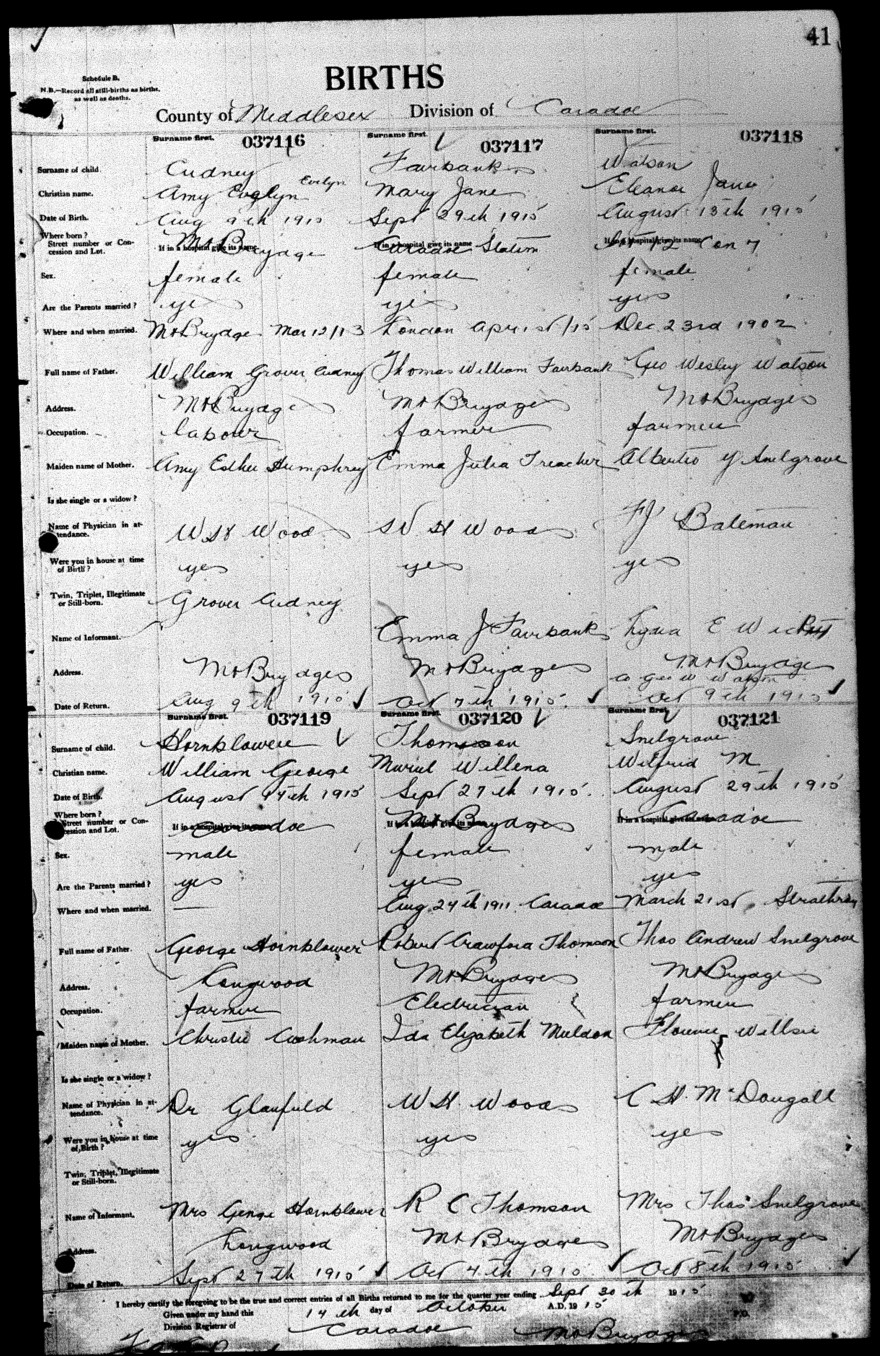 41
Schedule B.
N.B.—Record all still-births as births,
as well as deaths.
BIRTHS
County of Middlesex Division of Caradoc
Surname first. 037116 Surname first. 037117 Surname first. 037118
Surname of child. Cudney Fairbank Watson
Christian name. Amy Evelyn Evelyn Mary Jane Eleanor Jane
Date of Birth. Aug 9th 1915 Sept 29th 1915 August 13th 1915
Where born?
Street number or Concession and Lot. If in a hospital give its name Mt Brydge If in a hospital give its name Caradoc Station If in a hospital give its name Con 7
Sex. female female female
Are the Parents married? yes yes yes
Where and when married. Mt Brydge Mar 12/13 London Apr 1st/15 Dec 23rd 1902
Full name of Father. William Grover Cudney Thomas William Fairbank Geo Wesley Watson
Address. Mt Brydge Mt Brydges Mt Brydges
Occupation. labour farmer farmer
Maiden name of Mother. Amy Esther Humphrey Emma Julia Treacher Snelgrove
Is she single or a widow?
Name of Physician in attendance. W H Wood W H Wood Bateman
Were you in house at time of Birth? yes yes yes
Twin, Triplet, Illegitimate or Still-born.
Grover Cudney
Name of Informant. Emma J Fairbank Lydia E
Address. Mt Brydges Mt Brydges Mt Brydge
Geo W Watson
Date of Return. Aug 9th 1915 Oct 7th 1915 Oct 9th 1915
Surname first. 037119 Surname first. 037120 Surname first. 037121
Surname of child. Hornblower Thomson Snelgrove
Christian name. William George Muriel Willena Wilfrid M
Date of Birth. August 14th 1915 Sept 27th 1915 August 29th 1915
Where born?
Street number or Concession and Lot. If in a hospital give its name Caradoc If in a hospital give its name Mt Brydges If in a hospital give its name Caradoc
Sex. male female male
Are the Parents married? yes yes yes
Where and when married. — Aug 24th 1911 Caradoc March 21st Strathroy
Full name of Father. George Hornblower Robert Crawford Thomson Thos Andrew Snelgrove
Address. Longwood Mt Brydges Mt Brydges
Occupation. farmer Electrician farmer
Maiden name of Mother. Christie Cushman Ida Elizabeth Muldon Florence
Is she single or a widow?
Name of Physician in attendance. Dr W H. Wood C H. McDougall
Were you in house at time of Birth? yes yes yes
Twin, Triplet, Illegitimate or Still-born.
Name of Informant. Mrs George Hornblower R C Thomson Mrs Thos Snelgrove
Address. Longwood Mt Brydges Mt Brydges
Date of Return. Sept 27th 1915 Oct 4th 1915 Oct 8th 1915
I hereby certify the foregoing to be the true and correct entries of all Births returned to me for the quarter year ending Sept 30th 1915
Given under my hand this 14th day of October A.D. 1915
Division Registrar of Caradoc Mt Brydges P.O.